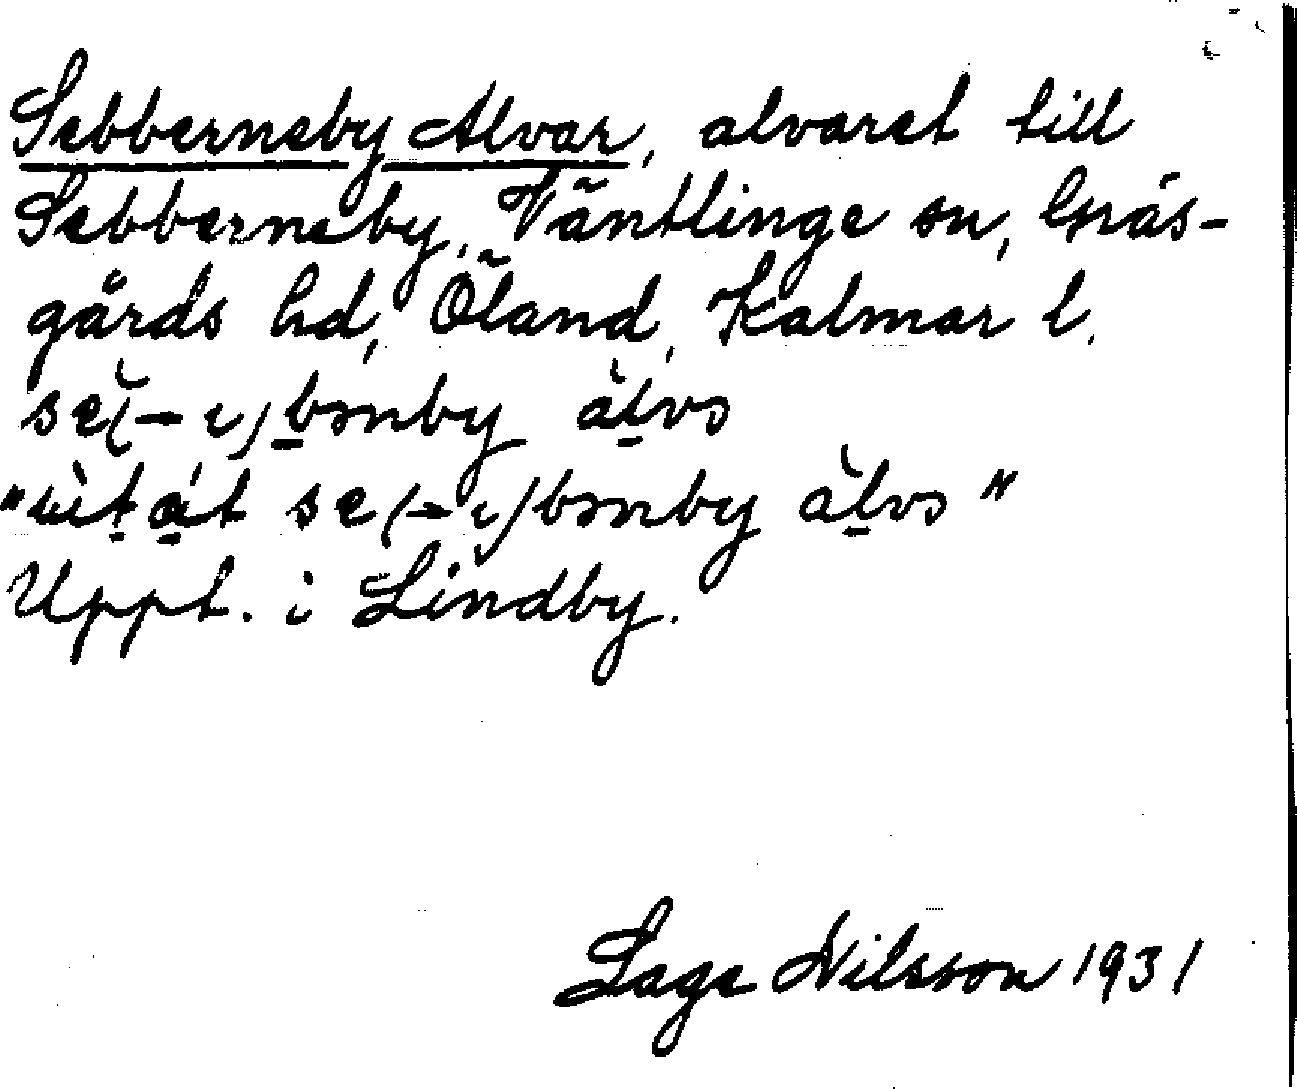 Sebberneby Alvar, alvaret till
Sebberneby, Väntlinge sn, Gräs-
gårds hd, Öland, Kalmar l.
se(-ɩ)bənby àlvə
"ùt át se(-ɩ)bənby àlvə"
Uppt. i Lindby.
Lage Nilsson 1931